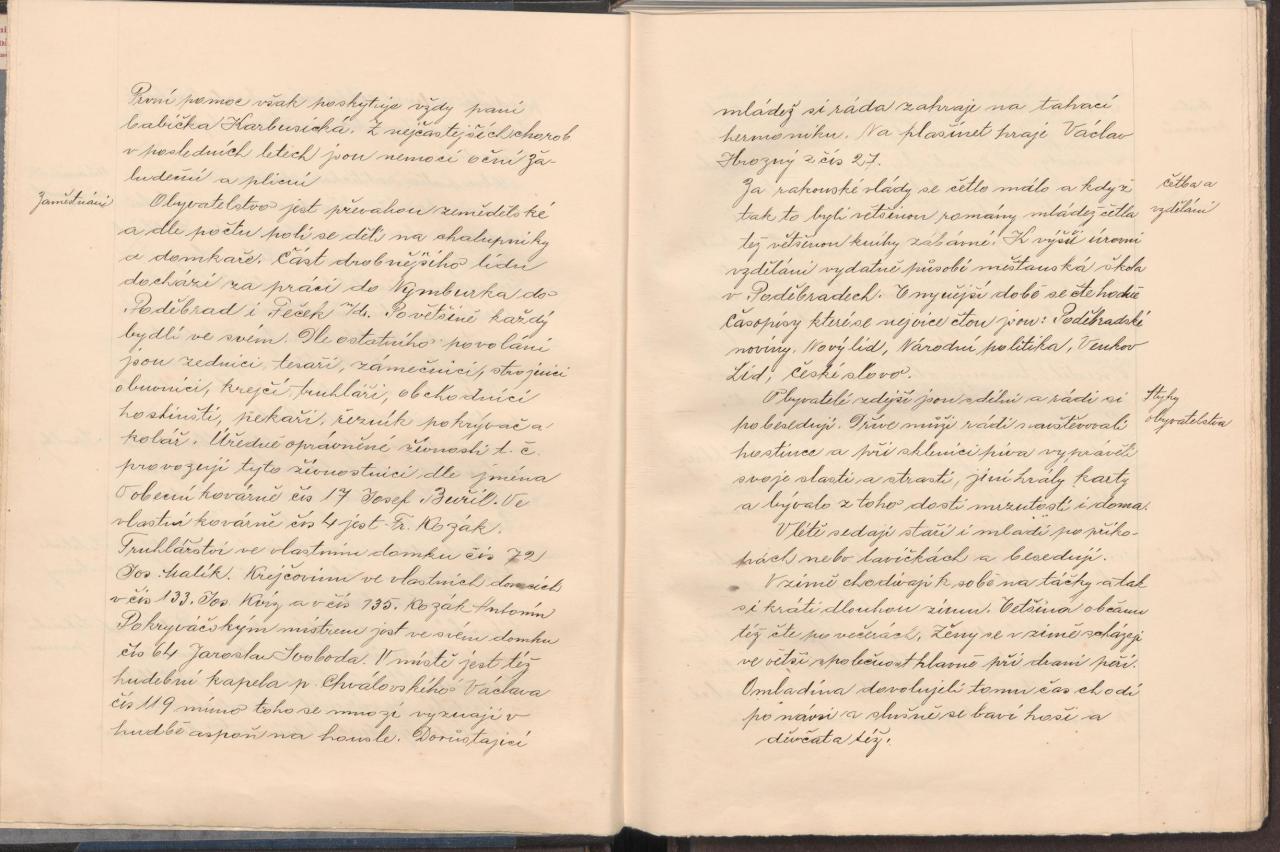 První pomoc však poskytuje vždy paní
babička Karbusická. Z nejčastějších chorob
v posledních letech jsou nemoci oční ža-
ludeční a plicní
Zaměstnání
Obyvatelstvo jest převahou zemědělské
a dle počtu polí se dělí na chalupníky
a domkaře. Část drobnějšího lidu
dochází za prací do Nymburka do
Poděbrad i Peček n/d. Povětšině každý
bydlí ve svém. Dle ostatního povolání
jsou zedníci, tesaři, zámečníci, strojníci
obuvníci, krejčí, truhláři, obchodníci
hostinští, pekaři, řezník pokrývač a
kolář. Úředně oprávněné živnosti t. č.
provozují tyto živnostníci dle jména
V obecní kovárně čís 17 Josef Buřil. Ve
vlastní kovárně čís 4 jest Fr. Kozák.
Truhlářství ve vlastním domku čís 72
Jos. Malík. Krejčovinu ve vlastních domcích
v čís 133. Jos. a v čís 135. Kozák Antonín
Pokryváčským mistrem jest ve svém domku
čís 64 Jaroslav Svoboda. V místě jest též
hudební kapela p. Chválovského Václava
čís 119 mimo toho se mnozí vyznají v
hudbě aspoň na housle. Dorůstající
mládež si ráda zahraje na tahací
hermoniku. Na plašinet hraje Václav
Hrozný z čís 27.
četba a
vzdělání
Za rakouské vlády se četlo málo a když
tak to byli většinou romány mládež četla
též většinou knihy zábavné. K vyšší úrovni
vzdělání vydatně působí měšťanská škola
v Poděbradech. V nynější době se čte hodně
Časopisy které se nejvíce čtou jsou: Poděbradské
noviny. Nový lid, Národní politika, Venkov
Lid, České slovo.
Styky
obyvatelstva
Obyvatelé zdejší jsou sdílní a rádi si
pobesedují. Dříve muži rádi navštěvovali
hostince a při sklenici piva vyprávěli
svoje slasti a strasti, jiní hráli karty
a bývalo z toho dosti mrzutostí i doma.
V létě sedají staří i mladí po příko-
pách nebo lavičkách a besedují.
V zimě chodívají k sobě na táčky a tak
si krátí dlouhou zimu. Většina občanů
též čte po večerách. Ženy se v zimě scházejí
ve větší společnost hlavně při draní peří.
Omladina dovolujeli tomu čas chodí
po návsi a slušně se baví hoši a
děvčata též.